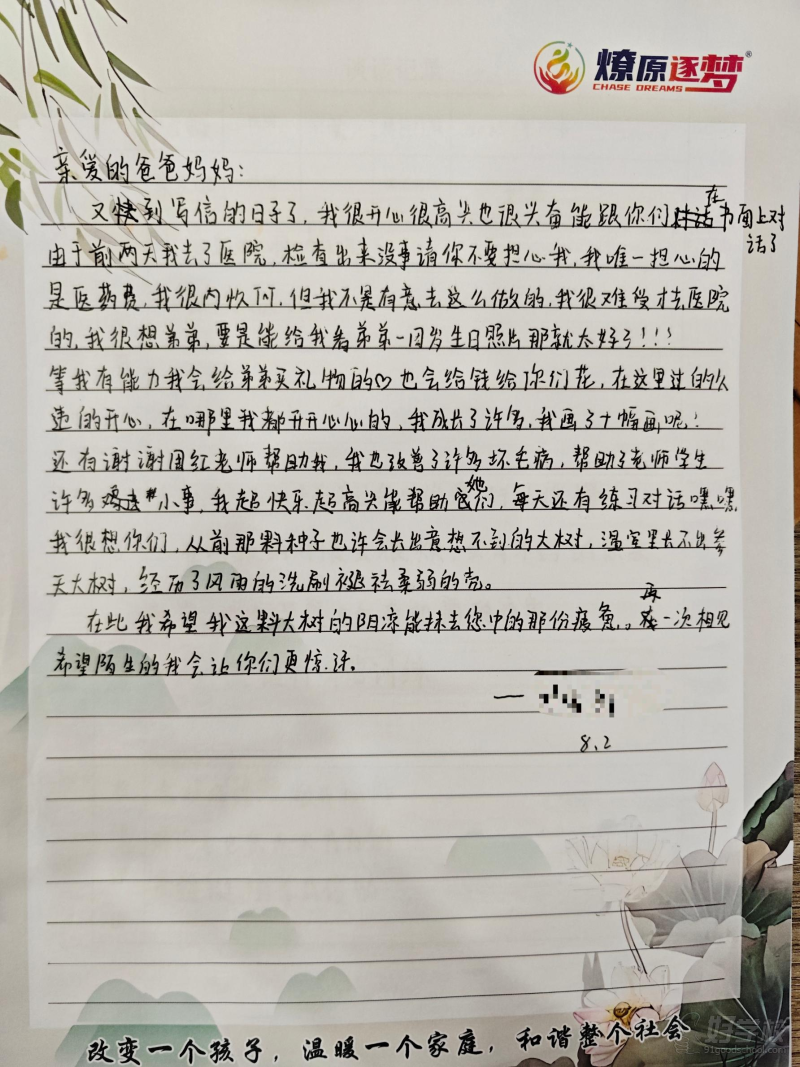 燎原逐梦®
CHASE DREAMS
亲爱的爸爸妈妈:
又快到写信的日子了，我很开心很高兴也很兴奋能跟你们在书面上对话了
由于前两天我去了医院，检查出来没事请你不要担心我，我唯一担心的
是医药费，我很内疚，但我不是有意去这么做的，我很难受才去医院
的，我很想弟弟，要是能给我看弟弟一周岁生日照片那就太好了!!!
等我有能力我会给弟弟买礼物的♡也会给钱给你们花，在这里过的久
违的开心，在哪里我都开开心心的，我成长了许多，我画了十幅画呢!
还有谢谢周红老师帮助我，我也改善了许多坏毛病，帮助了老师学生
许多小事，我超快乐超高兴能帮助她们，每天还有练习对话嘿嘿
我很想你们，从前那料种子也许会长出意想不到的大树，温室里长不出参
天大树，经历了风雨的洗刷褪祛柔弱的壳。
在此我希望我这料大树的阴凉能抹去您中的那份疲惫。再一次相见
希望陌生的我会让你们更惊讶。
8.2
改变一个孩子，温暖一个家庭，和谐整个社会
好学校
91goodschool.com